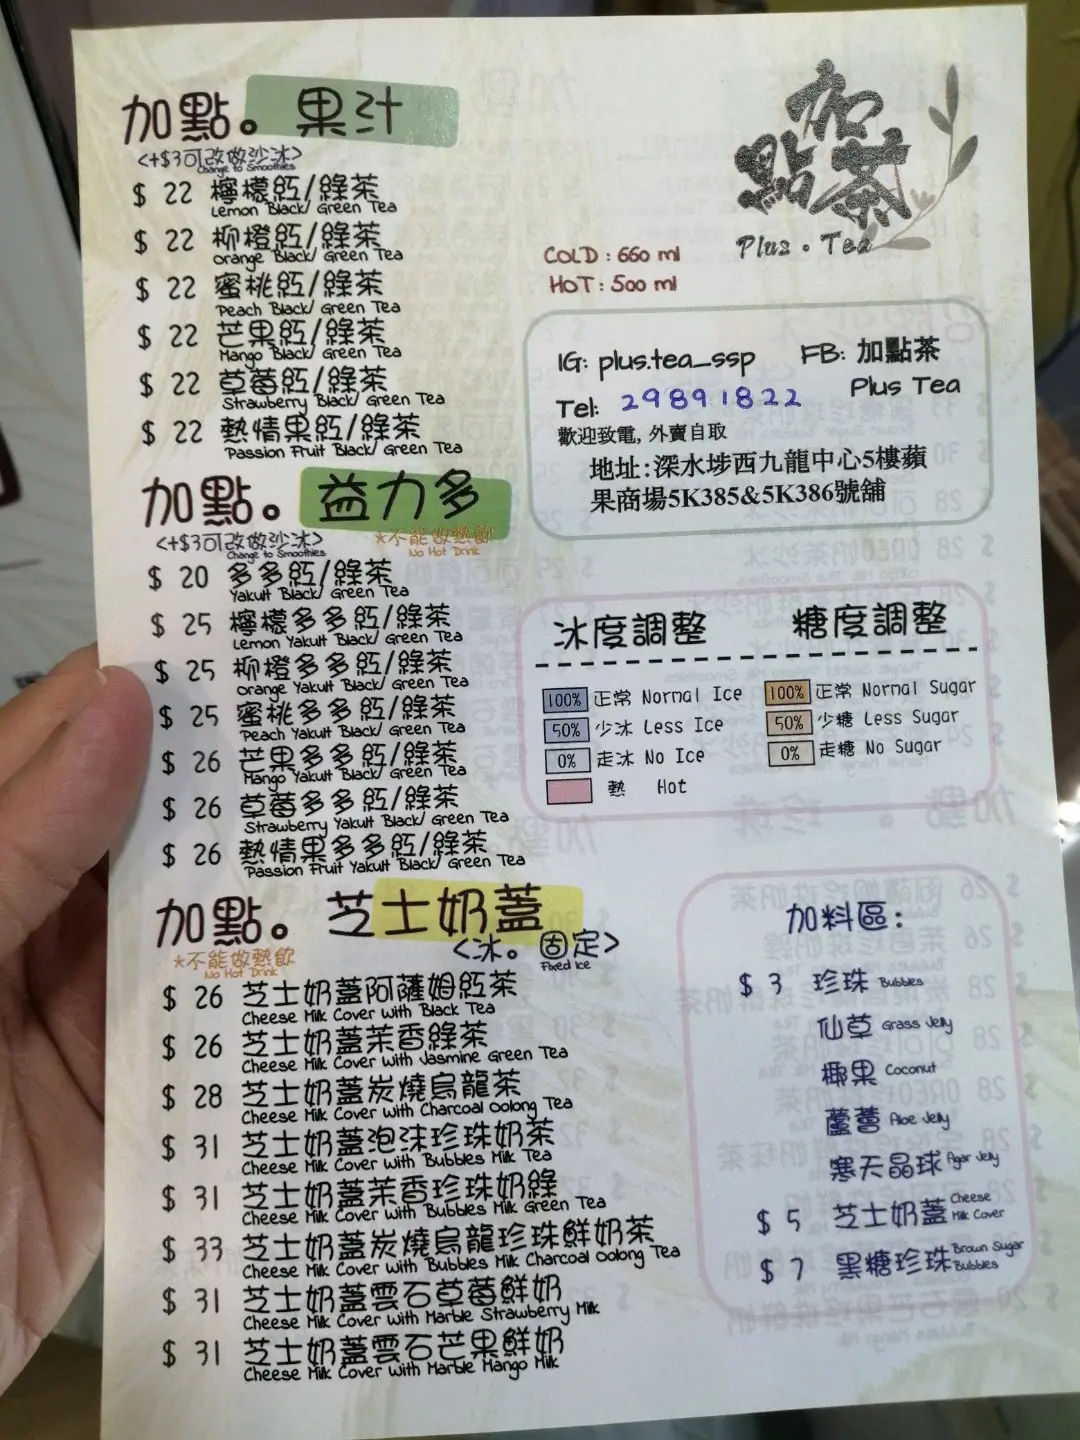 加點。果汁
<+$3可改做沙冰>
Change to Smoothies
$ 22 檸檬紅/綠茶
Lemon Black/ Green Tea
$ 22 柳橙紅/綠茶
Orange Black/ Green Tea
$ 22 蜜桃紅/綠茶
Peach Black/ Green Tea
$ 22 芒果紅/綠茶
Mango Black/ Green Tea
$ 22 草莓紅/綠茶
Strawberry Black/ Green Tea
$ 22 熱情果紅/綠茶
Passion Fruit Black/ Green Tea
加點。益力多
<+$3可改做沙冰>
Change to Smoothies
*不能做熱飲
No Hot Drink
$ 20 多多紅/綠茶
Yakult Black/ Green Tea
$ 25 檸檬多多紅/綠茶
Lemon Yakult Black/ Green Tea
$ 25 柳橙多多紅/綠茶
Orange Yakult Black/ Green Tea
$ 25 蜜桃多多紅/綠茶
Peach Yakult Black/ Green Tea
$ 26 芒果多多紅/綠茶
Mango Yakult Black/ Green Tea
$ 26 草莓多多紅/綠茶
Strawberry Yakult Black/ Green Tea
$ 26 熱情果多多紅/綠茶
Passion Fruit Yakult Black/ Green Tea
加點。芝士奶蓋
<冰。固定>
Fixed Ice
*不能做熱飲
No Hot Drink
$ 26 芝士奶蓋阿薩姆紅茶
Cheese Milk Cover with Black Tea
$ 26 芝士奶蓋茉香綠茶
Cheese Milk Cover with Jasmine Green Tea
$ 28 芝士奶蓋炭燒烏龍茶
Cheese Milk Cover with Charcoal Oolong Tea
$ 31 芝士奶蓋泡沫珍珠奶茶
Cheese Milk Cover with Bubbles Milk Tea
$ 31 芝士奶蓋茉香珍珠奶綠
Cheese Milk Cover with Bubbles Milk Green Tea
$ 33 芝士奶蓋炭燒烏龍珍珠鮮奶茶
Cheese Milk Cover with Bubbles Milk Charcoal Oolong Tea
$ 31 芝士奶蓋雲石草莓鮮奶
Cheese Milk Cover with Marble Strawberry Milk
$ 31 芝士奶蓋雲石芒果鮮奶
Cheese Milk Cover with Marble Mango Milk
加點茶
Plus・Tea
COLD : 660 ml
HOT : 500 ml
IG: plus.tea_ssp FB: 加點茶
Plus Tea
Tel: 29891822
歡迎致電, 外賣自取
地址:深水埗西九龍中心5樓蘋
果商場5K385&5K386號舖
冰度調整 糖度調整
100% 正常 Normal Ice 100% 正常 Normal Sugar
50% 少冰 Less Ice 50% 少糖 Less Sugar
0% 走冰 No Ice 0% 走糖 No Sugar
熱 Hot
加料區:
$ 3 珍珠 Bubbles
仙草 Grass Jelly
椰果 Coconut
蘆薈 Aloe Jelly
寒天晶球 Agar Jelly
$ 5 芝士奶蓋 Cheese Milk Cover
$ 7 黑糖珍珠 Brown Sugar Bubbles